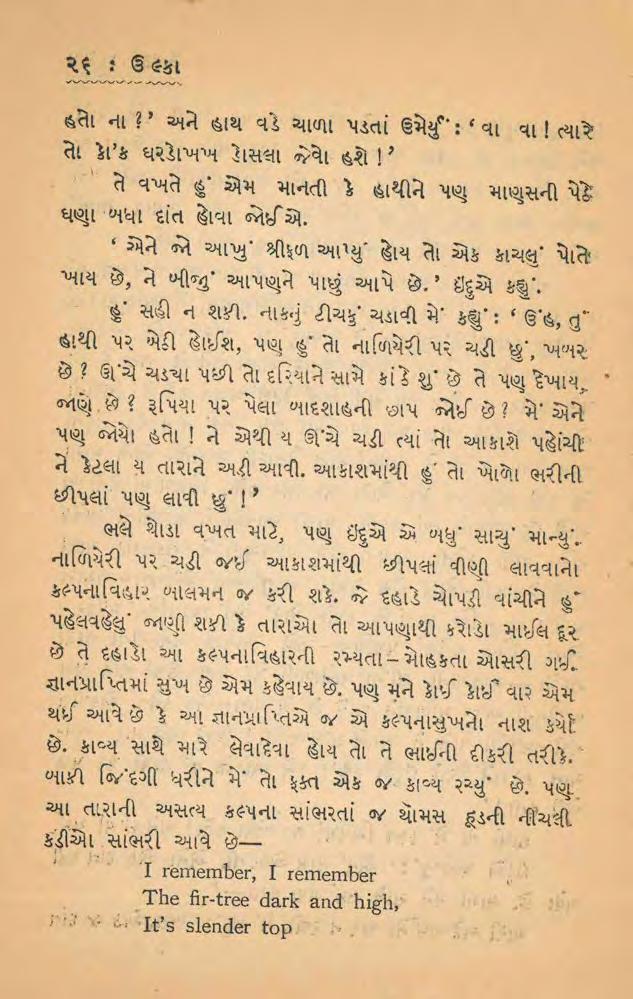 ૨૬ : ઉલ્કા
હતો ના ?’ અને હાથ વડે ચાળા પડતાં ઉમેર્યું : ‘ વા વા ! ત્યારે
તો કો’ક ઘરડોખખ ડોસલા જેવો હશે ! ’
તે વખતે હું એમ માનતી કે હાથીને પણ માણસની પેઠે
ઘણા બધા દાંત હોવા જોઈએ.
‘ એને જો આખું શ્રીફળ આપ્યું હોય તો એક કાચલું પોતે
ખાય છે, ને બીજું આપણને પાછું આપે છે. ’ ઇંદુએ કહ્યું.
હું સહી ન શકી. નાકનું ટીચકું ચડાવી મેં કહ્યું : ‘ ઉંહ, તું
હાથી પર બેઠી હોઈશ, પણ હું તો નાળિયેરી પર ચડી છું, ખબર
છે ? ઊંચે ચડ્યા પછી તો દરિયાને સામે કાંઠે શું છે તે પણ દેખાય,
જાણે છે ? રૂપિયા પર પેલા બાદશાહની છાપ જોઈ છે ? મેં એને
પણ જોયો હતો ! ને એથી ય ઊંચે ચડી ત્યાં તો આકાશે પહોંચી
ને કેટલા ય તારાને અડી આવી. આકાશમાંથી હું તો ખોળો ભરીની
છીપલાં પણ લાવી છું ! ’
ભલે થોડા વખત માટે, પણ ઇંદુએ એ બધું સાચું માન્યું.
નાળિયેરી પર ચડી જઈ આકાશમાંથી છીપલાં વીણી લાવવાનો
કલ્પનાવિહાર બાલમન જ કરી શકે. જે દહાડે ચોપડી વાંચીને હું
પહેલવહેલું જાણી શકી કે તારાઓ તો આપણાથી કરોડો માઈલ દૂર
છે તે દહાડો આ કલ્પનાવિહારની રમ્યતા – મોહકતા ઓસરી ગઈ.
જ્ઞાનપ્રાપ્તિમાં સુખ છે એમ કહેવાય છે. પણ મને કોઈ કોઈ વાર એમ
થઈ આવે છે કે આ જ્ઞાનપ્રાપ્તિએ જ એ કલ્પનાસુખનો નાશ કર્યો
છે. કાવ્ય સાથે મારે લેવાદેવા હોય તો તે ભાઈની દીકરી તરીકે.
બાકી જિંદગી ધરીને મેં તો ફક્ત એક જ કાવ્ય રચ્યું છે. પણ
આ તારાની અસત્ય કલ્પના સાંભરતાં જ થૉમસ હૂડની નીચલી
કડીઓ સાંભરી આવે છે—
I remember, I remember
The fir-tree dark and high,
It’s slender top